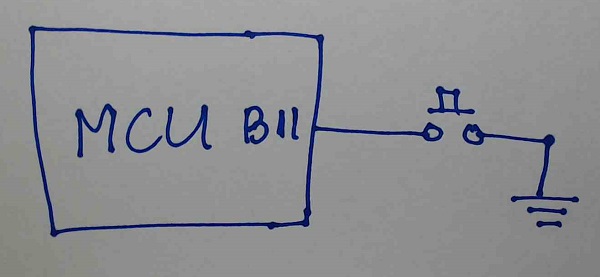 MCU B11